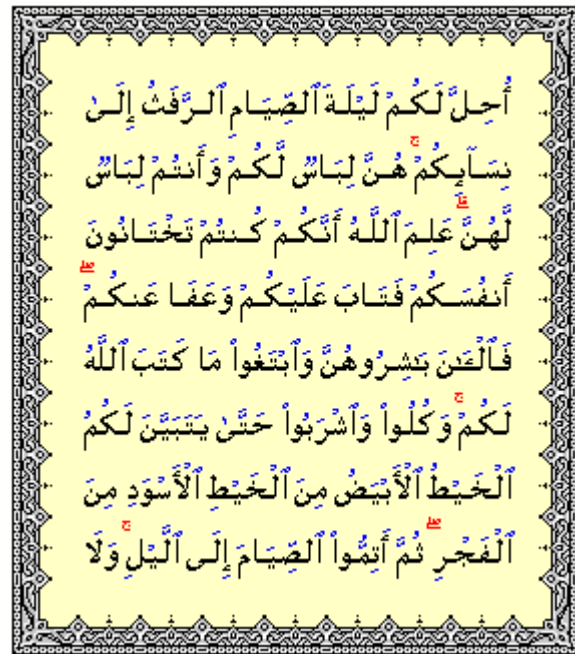 أُحِلَّ لَكُمْ لَيْلَةَ ٱلصِّيَامِ ٱلرَّفَثُ إِلَىٰ
نِسَآئِكُمْ ۚ هُنَّ لِبَاسٌ لَّكُمْ وَأَنتُمْ لِبَاسٌ
لَّهُنَّ ۗ عَلِمَ ٱللَّهُ أَنَّكُمْ كُنتُمْ تَخْتَانُونَ
أَنفُسَكُمْ فَتَابَ عَلَيْكُمْ وَعَفَا عَنكُمْ ۖ
فَٱلْـَٰٔنَ بَـٰشِرُوهُنَّ وَٱبْتَغُوا۟ مَا كَتَبَ ٱللَّهُ
لَكُمْ ۚ وَكُلُوا۟ وَٱشْرَبُوا۟ حَتَّىٰ يَتَبَيَّنَ لَكُمُ
ٱلْخَيْطُ ٱلْأَبْيَضُ مِنَ ٱلْخَيْطِ ٱلْأَسْوَدِ مِنَ
ٱلْفَجْرِ ۖ ثُمَّ أَتِمُّوا۟ ٱلصِّيَامَ إِلَى ٱلَّيْلِ ۚ وَلَا